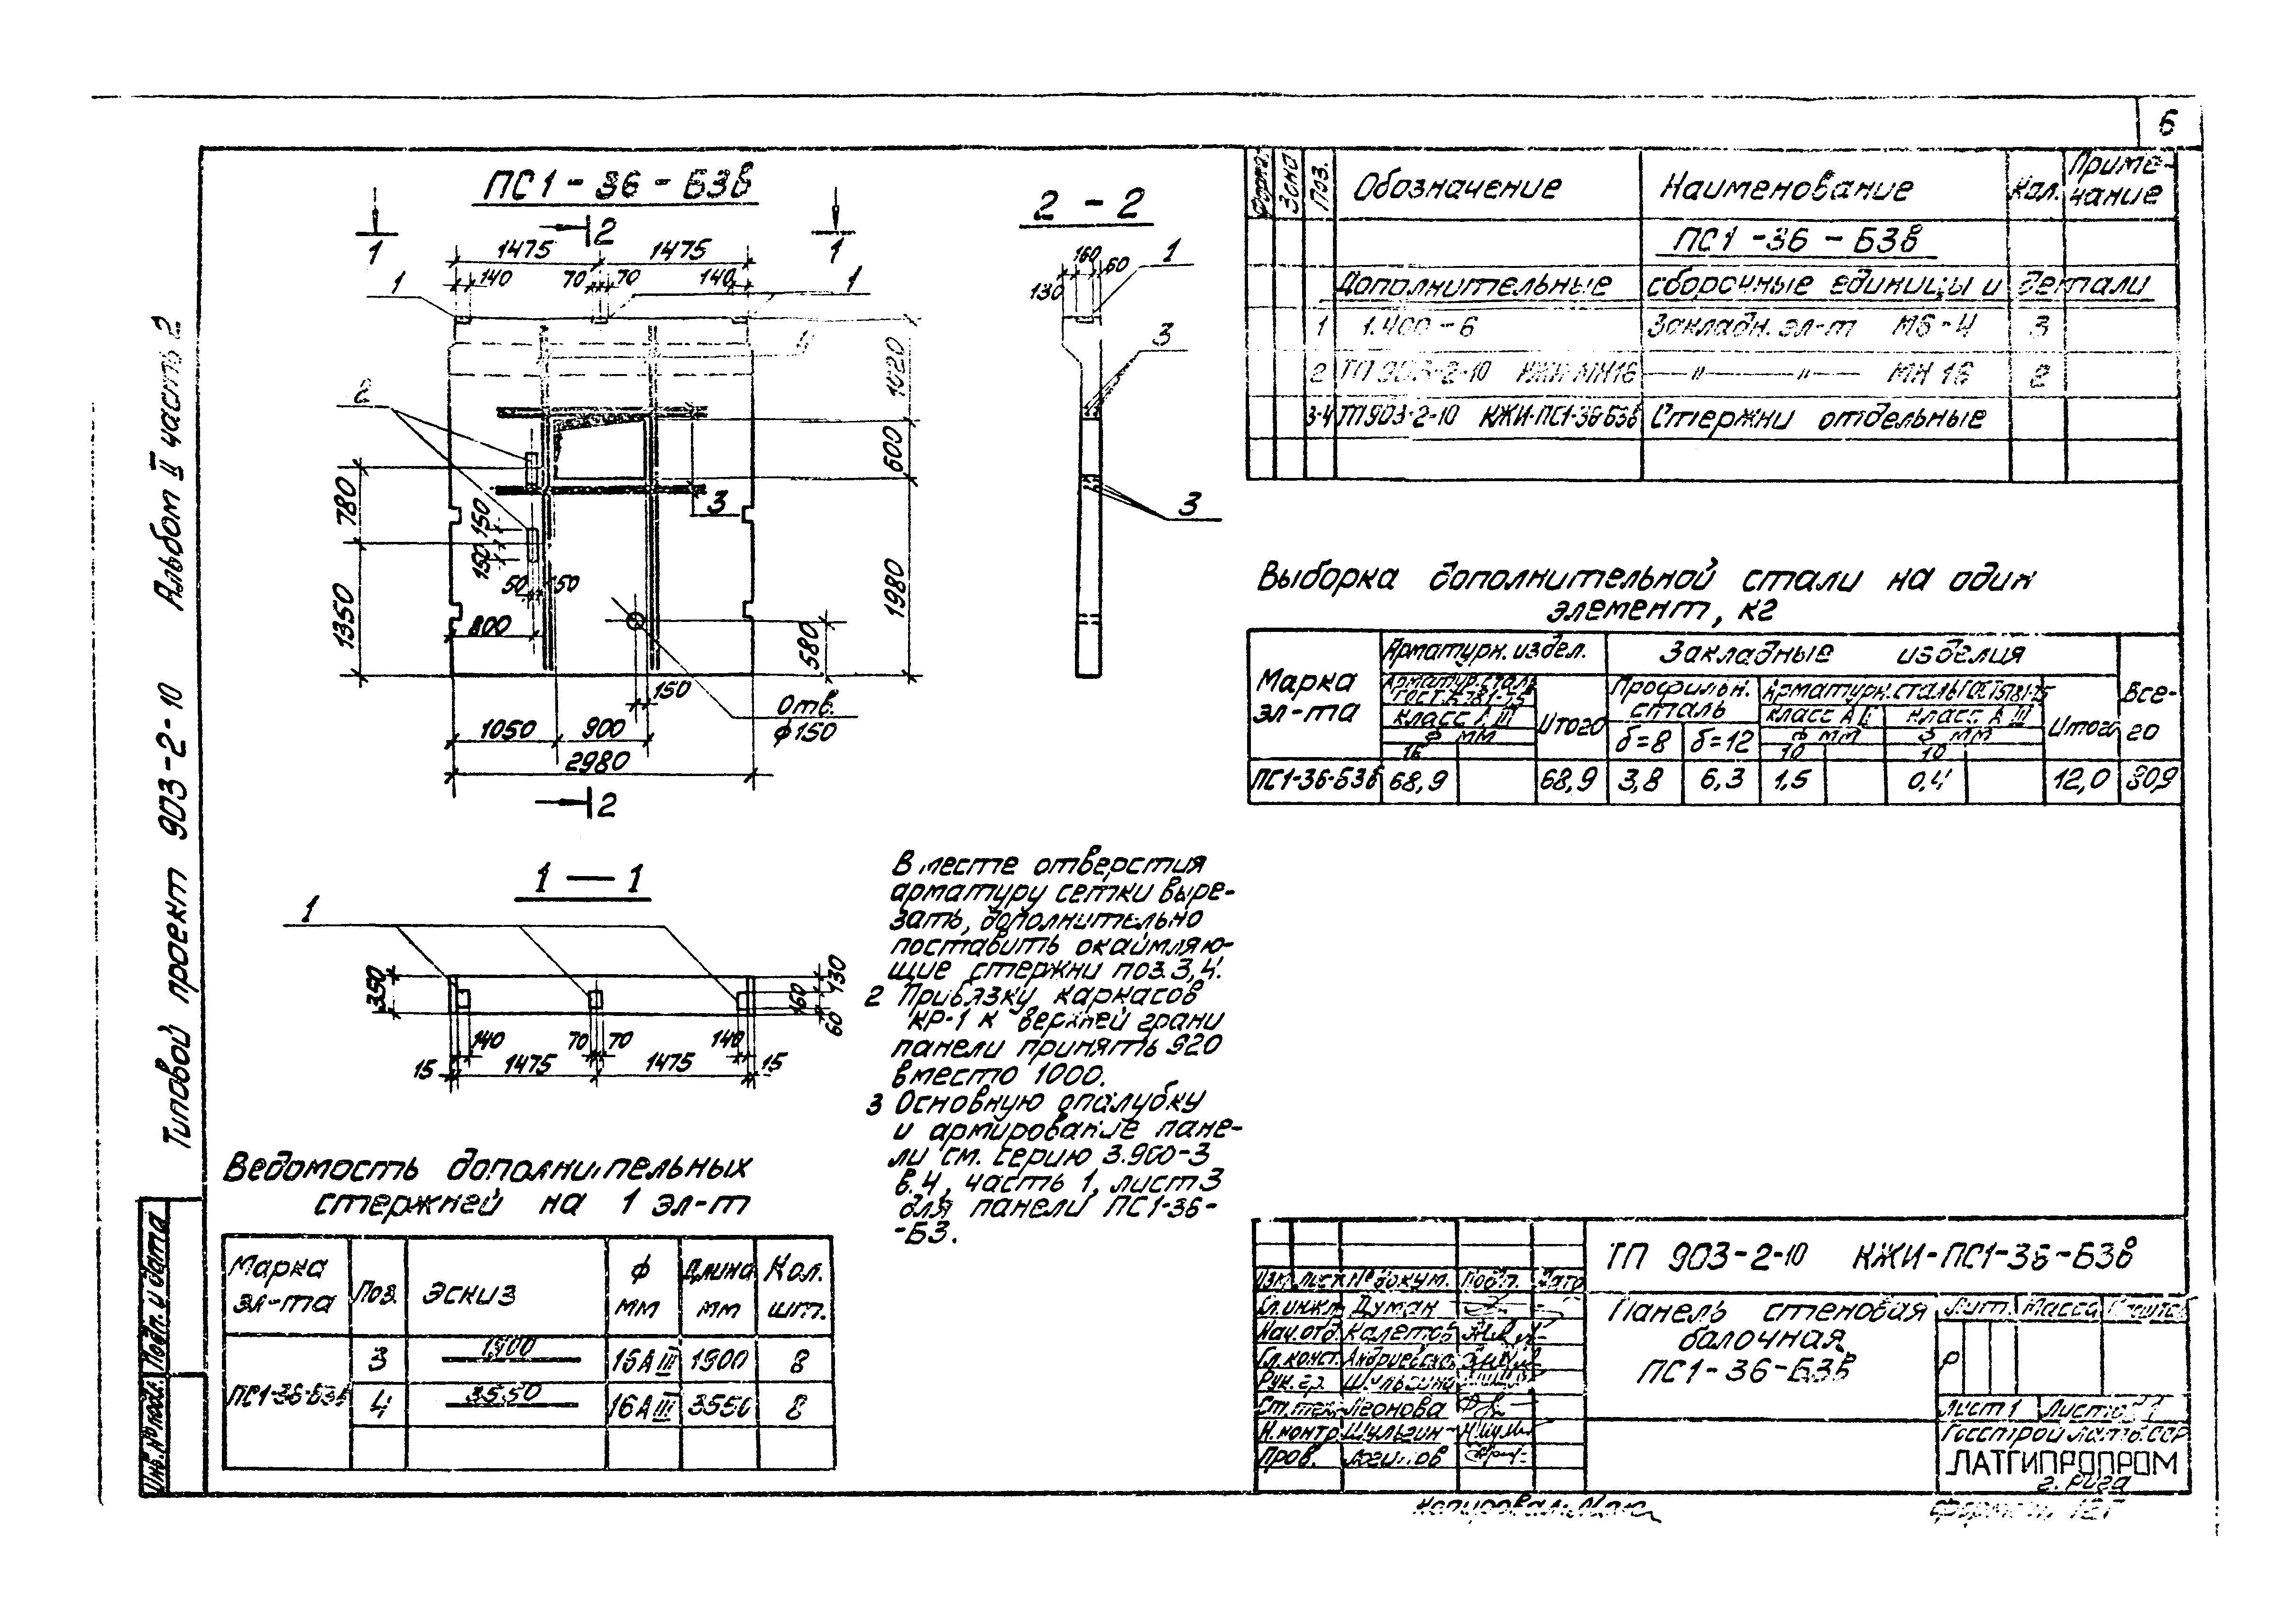 6
Типовой проект 903-2-10 Альбом II часть 2
ПС1-36-Б3в
1 1
2
1475 1475
140 70 70 140
1 1
4
2
3
1020
600
1980
780
1350
150
150
50 50
800
580
150
Отв.
ф150
1050 900
2980
2
2-2
160
60
130
1
3
3
1 — 1
1
350
130
160
60
140 70 70 140
15 1475 1475 15
В месте отверстия
арматуру сетки выре-
зать, дополнительно
поставить окаймляю-
щие стержни поз. 3,4.
2 Привязку каркасов
КР-1 к верхней грани
панели принять 920
вместо 1000.
3 Основную опалубку
и армирование пане-
ли см. серию 3.900-3
в.4, часть 1, лист 3
для панели ПС1-36-
-Б3.
Ведомость дополнительных
стержней на 1 эл-т
Марка эл-та Поз. Эскиз ф мм Длина мм Кол. шт.
ПС1-36-Б3в 3 1900 16АIII 1900 8
4 3550 16АIII 3550 8
Форма. Зона Поз. Обозначение Наименование Кол. Приме-чание
ПС1-36-Б3в
Дополнительные сборочные единицы и детали
1 1.400-6 Закладн. эл-т М6-4 3
2 ТП 903-2-10 КЖИ-МН16 —"—"— МН 16 2
3-4 ТП903-2-10 КЖИ-ПС1-36-Б3в Стержни отдельные
Выборка дополнительной стали на один
элемент, кг
Марка эл-та
Арматурн. издел. Закладные изделия Все-го
Арматур. сталь ГОСТ 5781-75 Итого Профильн. сталь Арматурн. сталь ГОСТ5781-75 Итого
класс А III класс А II класс А III
ф мм δ=8 δ=12 ф мм ф мм
16 10 10
ПС1-36-Б3в 68,9 68,9 3,8 6,3 1,5 0,4 12,0 80,9
ТП 903-2-10 КЖИ-ПС1-36-Б3в
Изм. Лист № докум. Подп. Дата
Гл. инж. Думан
Нач. отд. Калетов
Гл. конст.
Рук. гр. Шульгина
Ст. тех. Леонова
Н. контр. Шульгин
Пров.
Панель стеновая
балочная
ПС1-36-Б3в
Лит. Масса
Р
Лист 1 Листов 1
Госстрой Латв. ССР
ЛАТГИПРОПРОМ
г. Рига
Инв. № подл. Подп. и дата
Копировал:
Формат 12Г